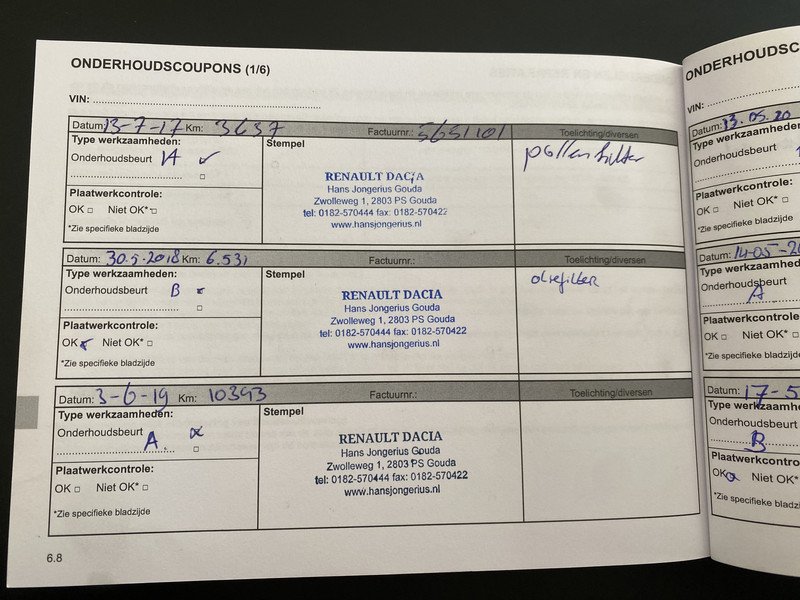 ONDERHOUDSCOUPONS (1/6)
VIN:
Datum: 13-7-17 Km: 3637 Factuurnr.: 5651101 Toelichting/diversen
Type werkzaamheden: Stempel pollenfilter
Onderhoudsbeurt 1A
RENAULT DACIA
Hans Jongerius Gouda
Zwolleweg 1, 2803 PS Gouda
tel: 0182-570444 fax: 0182-570422
www.hansjongerius.nl
Plaatwerkcontrole:
OK □ Niet OK* □
*Zie specifieke bladzijde
Datum: 30-5-2018 Km: 6.531 Factuurnr.: Toelichting/diversen
Type werkzaamheden: Stempel oliefilter
Onderhoudsbeurt B
RENAULT DACIA
Hans Jongerius Gouda
Zwolleweg 1, 2803 PS Gouda
tel: 0182-570444 fax: 0182-570422
www.hansjongerius.nl
Plaatwerkcontrole:
OK Niet OK* □
*Zie specifieke bladzijde
Datum: 3-6-19 Km: 10393 Factuurnr.: Toelichting/diversen
Type werkzaamheden: Stempel
Onderhoudsbeurt A.
RENAULT DACIA
Hans Jongerius Gouda
Zwolleweg 1, 2803 PS Gouda
tel: 0182-570444 fax: 0182-570422
www.hansjongerius.nl
Plaatwerkcontrole:
OK □ Niet OK* □
*Zie specifieke bladzijde
6.8
ONDERHOUDSC
VIN:
Datum: 13.05.20
Type werkzaamheden:
Onderhoudsbeurt
Plaatwerkcontrole:
OK □ Niet OK* □
*Zie specifieke bladzijde
Datum: 14-05-2
Type werkzaamheden:
Onderhoudsbeurt
A
Plaatwerkcontrole:
OK □ Niet OK* □
*Zie specifieke bladzijde
Datum: 17-5
Type werkzaamhe
Onderhoudsbeurt
B
Plaatwerkcontro
OK Niet OK*
*Zie specifieke bladz